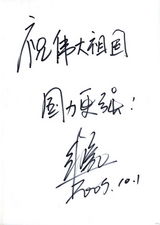 祝伟大祖国
国力更强!
2009.10.1